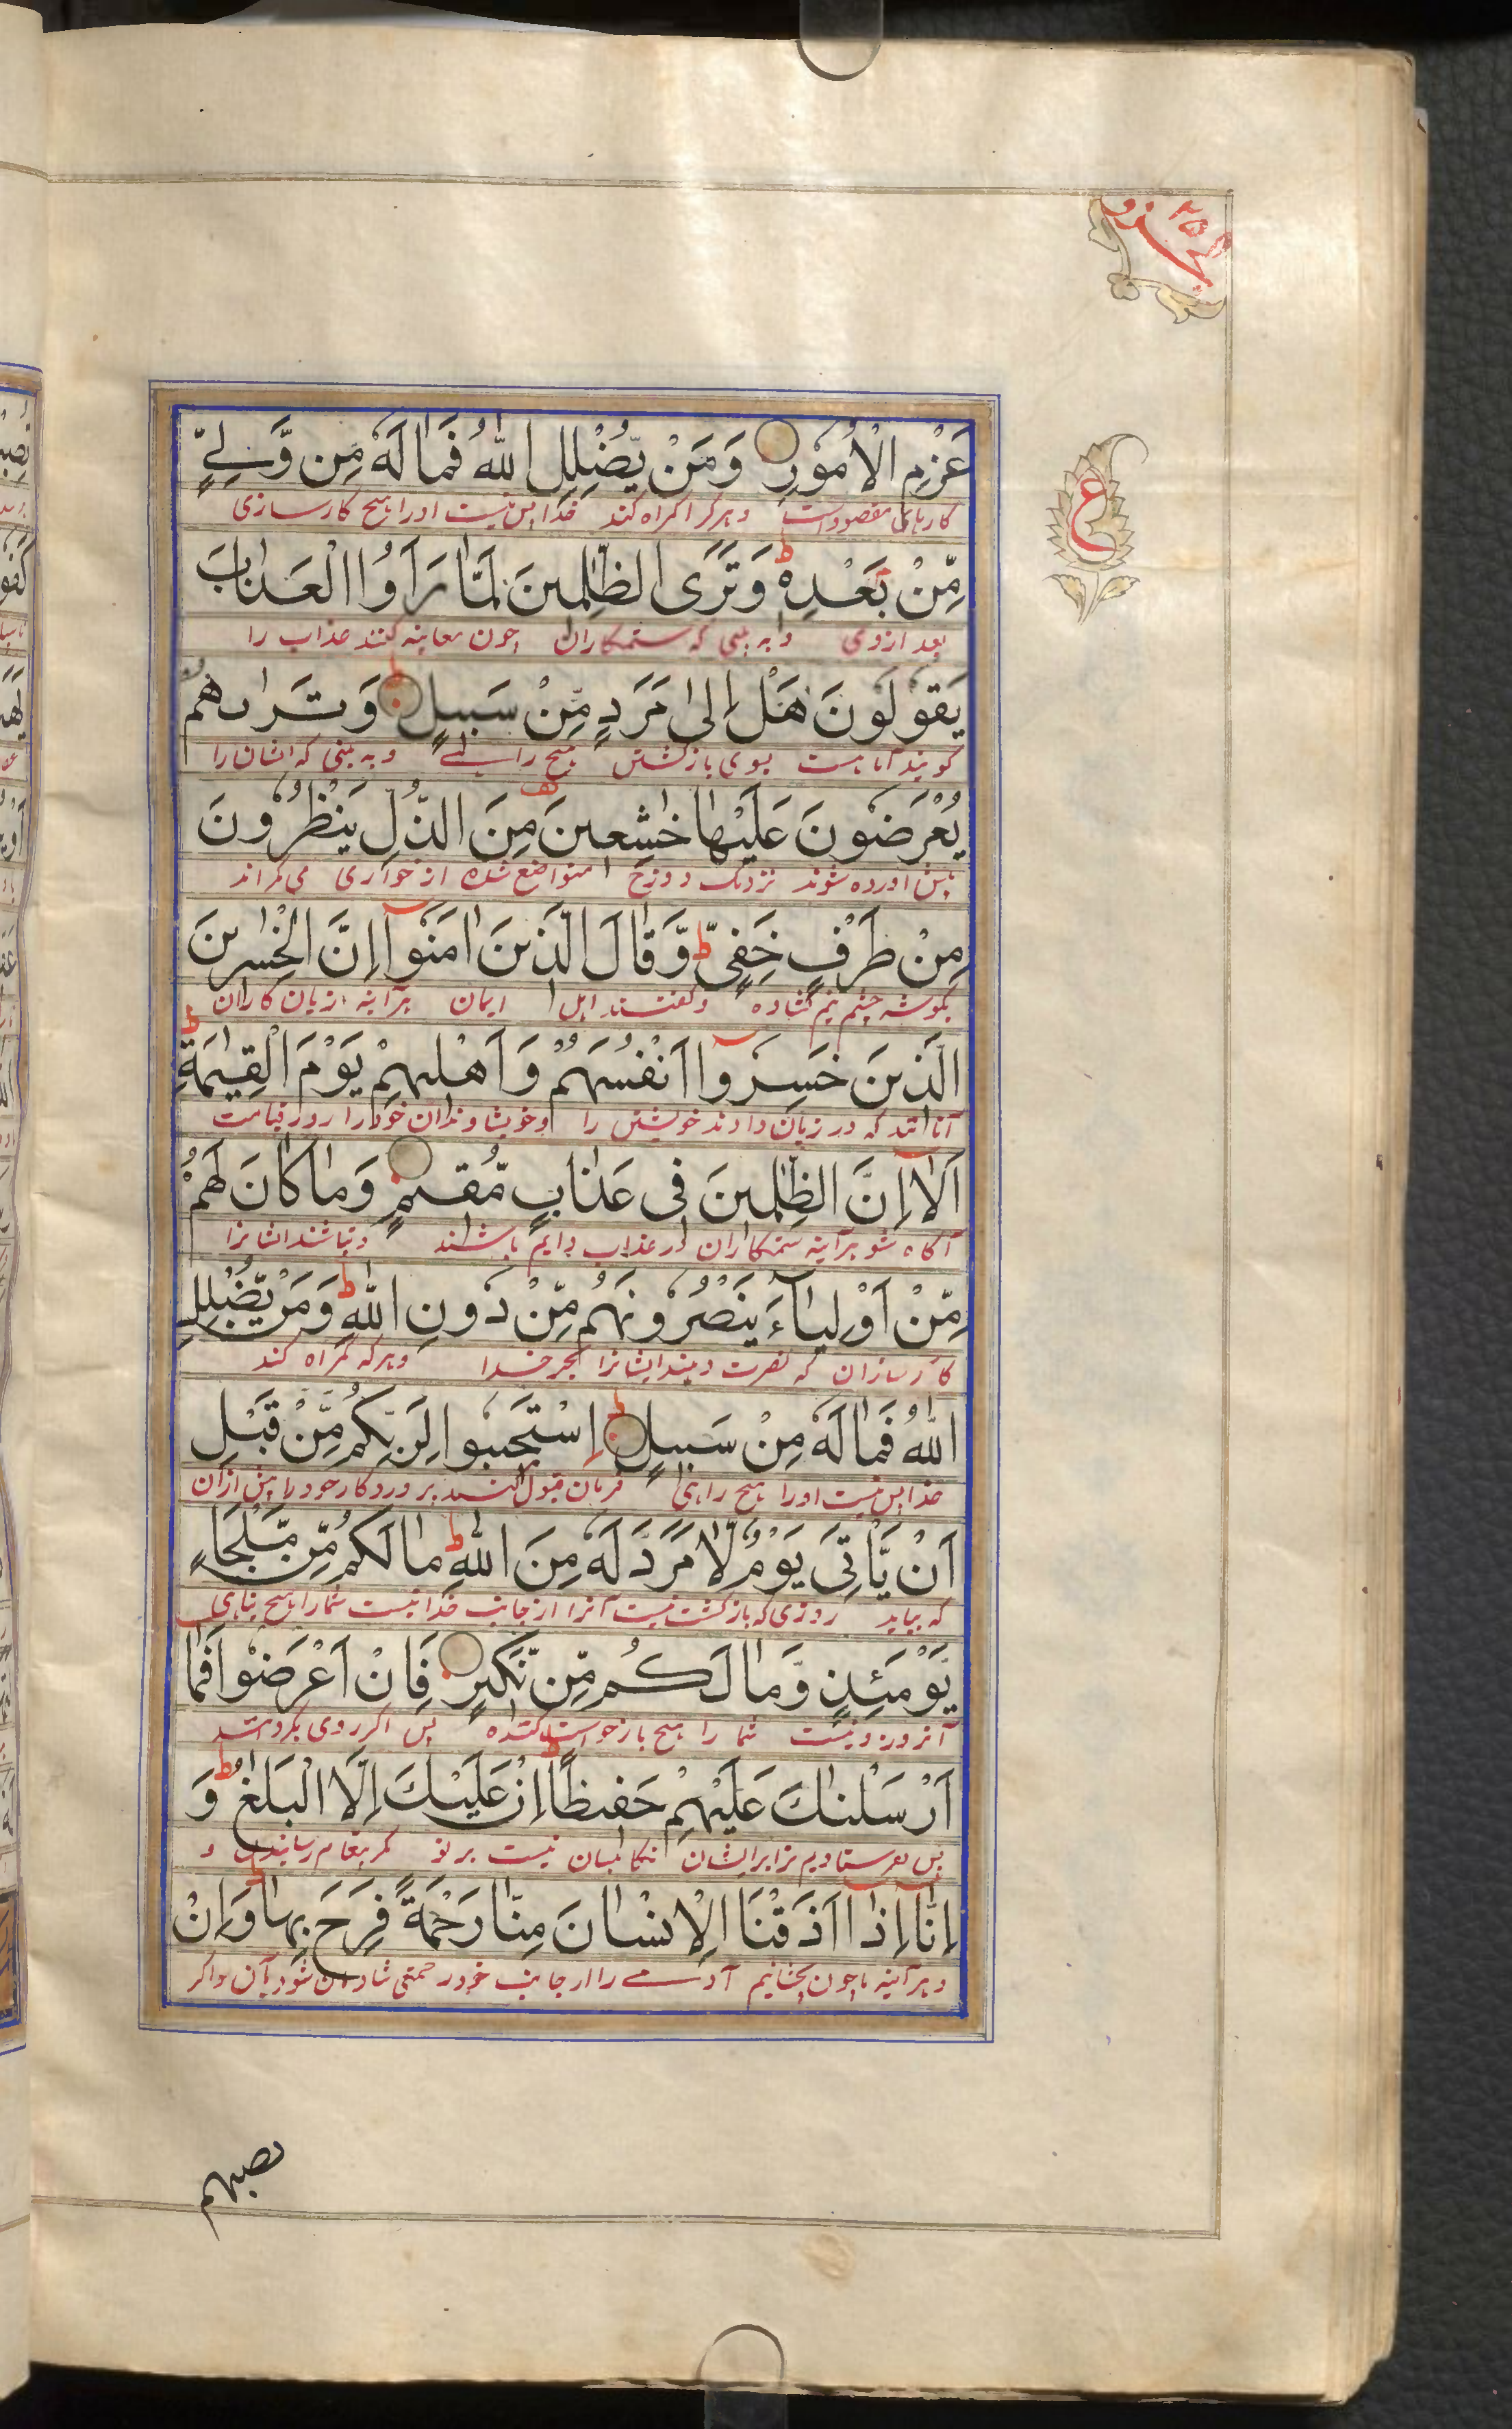 الجزو ٢٥
ع
عَزْمِ الْاُمُوْرِ وَمَنْ يُّضْلِلِ اللّٰهُ فَمَا لَهٗ مِنْ وَّلِيٍّ
کارهای مقصود است و هر کرا گمراه کند خدا پس نیست او را هیچ کارسازی
مِّنْ بَعْدِهٖ ط وَتَرَى الظّٰلِمِيْنَ لَمَّا رَاَوُا الْعَذَابَ
بعد ازوی و به بینی که ستمکاران چون معاینه کنند عذاب را
يَقُوْلُوْنَ هَلْ اِلٰى مَرَدٍّ مِّنْ سَبِيْلٍ وَتَرٰىهُمْ
گویند آیا هست بسوی بازگشتن هیچ راهے و به بینی که ایشان را
يُعْرَضُوْنَ عَلَيْهَا خٰشِعِيْنَ مِنَ الذُّلِّ يَنْظُرُوْنَ
پیش آورده شوند نزدیک دوزخ متواضع شده از خواری می نگراند
مِنْ طَرْفٍ خَفِيٍّ ط وَّقَالَ الَّذِيْنَ اٰمَنُوْٓا اِنَّ الْخٰسِرِيْنَ
بگوشه چشم نیم گشاده و گفتند اهل ایمان هرآینه زیان کاران
الَّذِيْنَ خَسِرُوْٓا اَنْفُسَهُمْ وَاَهْلِيْهِمْ يَوْمَ الْقِيٰمَةِ ط
آنانند که در زیان دادند خویشتن را و خویشاوندان خود را روز قیامت
اَلَآ اِنَّ الظّٰلِمِيْنَ فِيْ عَذَابٍ مُّقِيْمٍ وَمَا كَانَ لَهُمْ
آگاه شو هرآینه ستمکاران در عذاب دایم باشند و نباشند ایشانرا
مِّنْ اَوْلِيَآءَ يَنْصُرُوْنَهُمْ مِّنْ دُوْنِ اللّٰهِ ط وَمَنْ يُّضْلِلِ
کارسازان که نصرت دهند ایشانرا بجز خدا و هر که گمراه کند
اللّٰهُ فَمَا لَهٗ مِنْ سَبِيْلٍ ط اِسْتَجِيْبُوْا لِرَبِّكُمْ مِّنْ قَبْلِ
خدا پس نیست او را هیچ راهی فرمان قبول کنید پروردگار خود را پیش ازان
اَنْ يَّاْتِيَ يَوْمٌ لَّا مَرَدَّ لَهٗ مِنَ اللّٰهِ ط مَا لَكُمْ مِّنْ مَّلْجَاٍ
که بیاید روزی که بازگشت نیست آنرا از جانب خدا نیست شما را هیچ پناهی
يَّوْمَئِذٍ وَّمَا لَكُمْ مِّنْ نَّكِيْرٍ فَاِنْ اَعْرَضُوْا فَمَآ
آنروز و نیست شما را هیچ بازخواست کننده پس اگر روی بگردانند
اَرْسَلْنٰكَ عَلَيْهِمْ حَفِيْظًا ط اِنْ عَلَيْكَ اِلَّا الْبَلٰغُ ط وَ
پس نفرستادیم ترا برایشان نگاهبان نیست بر تو مگر پیغام رسانیدن و
اِنَّآ اِذَآ اَذَقْنَا الْاِنْسَانَ مِنَّا رَحْمَةً فَرِحَ بِهَا ط وَاِنْ
و هرآینه ما چون بچشانیم آدمے را از جانب خود رحمتی شادمان شود بآن و اگر
تصبهم